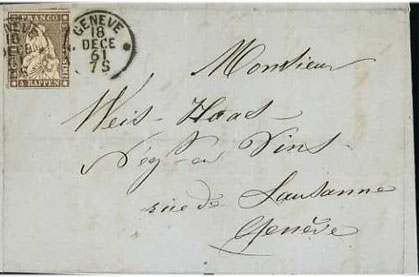 FRANCO
5 RAPPEN
GENÈVE
18
DECE
61
7S
Monsieur
Weis-Haas
Nég-en Vins
rue de Lausanne
Genève